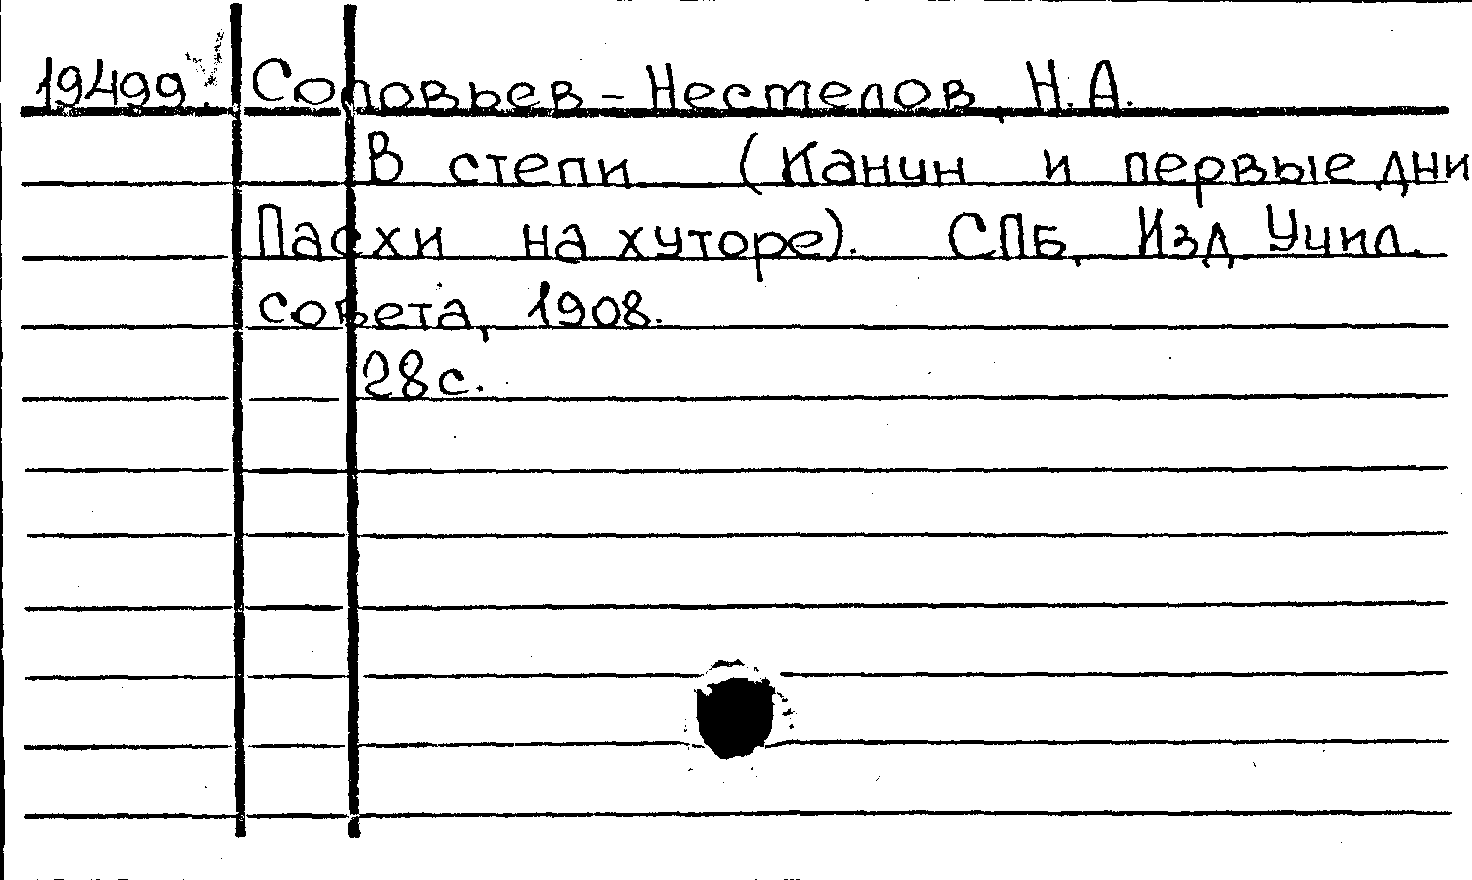 19499. Соловьев - Нестелов, Н.А.
В степи (Канун и первые дни
Пасхи на хуторе). СПБ, Изд Учил.
совета, 1908.
28 с.